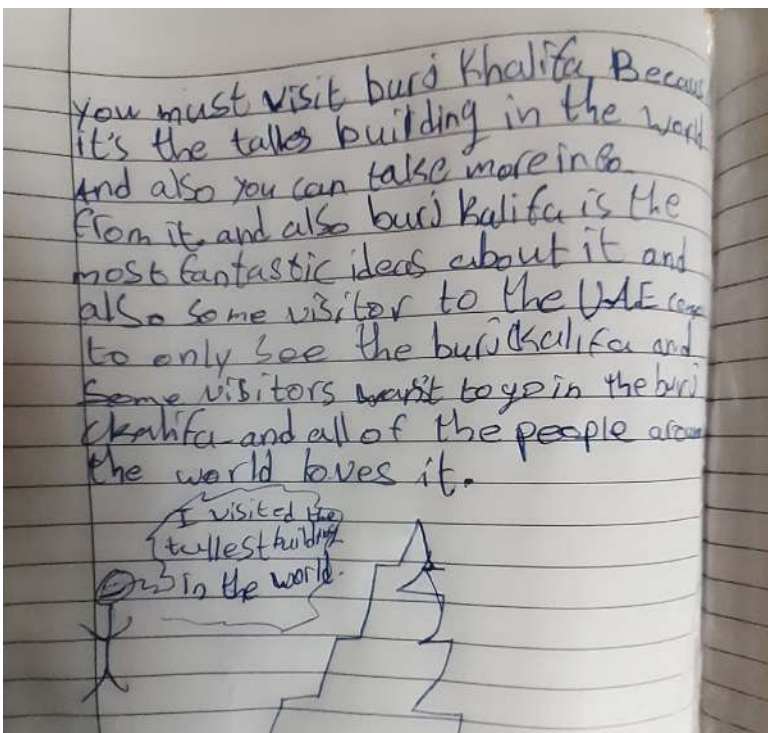 You must visit burj Khalifa, Becaus
it's the talles building in the world
And also you can take more info
from it and also burj kalifa is the
most fantastic ideas about it and
also some visitor to the UAE come
to only see the burj kalifa and
some visitors want to go in the burj
kalifa and all of the people aroun
the world loves it.
I visited the
tullest building
in the world.